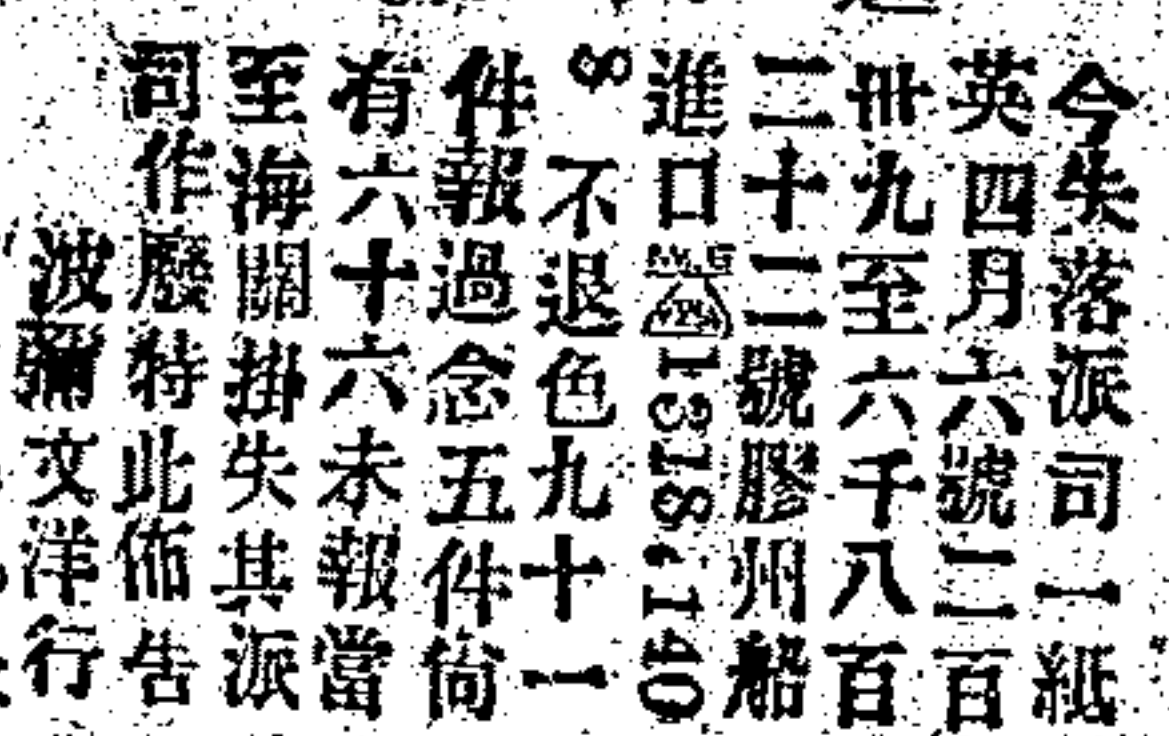 今失落派司一紙
英四月六號二百
卅九至六千八百
二十二號膠州船
進口1378.140
8不退色九十一
件報過念五件尙
有六十六未報當
至海關掛失其派
司作廢特此佈告
波彌文洋行